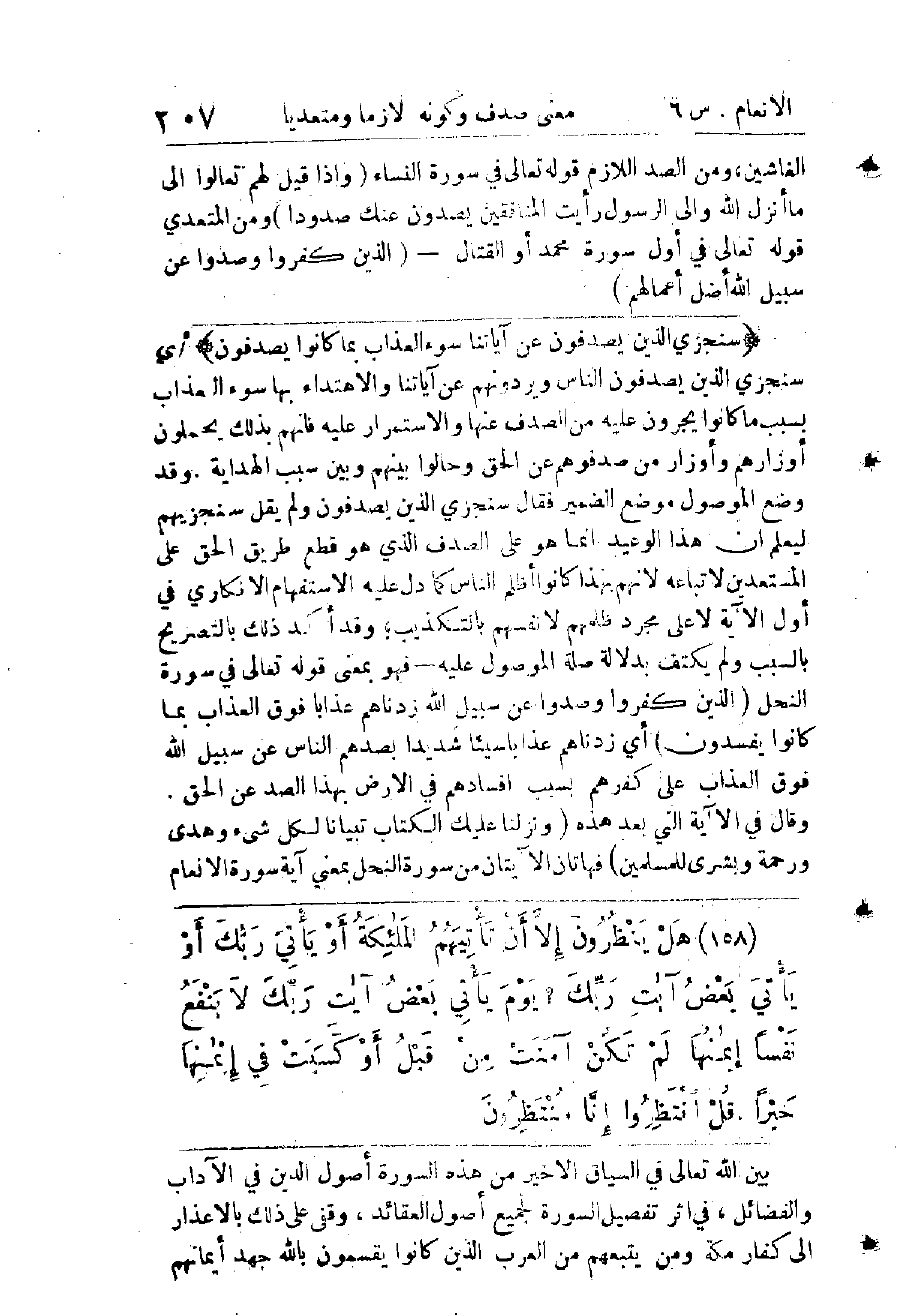 الانعام . س ٦ معنى صدف وكونه لازما ومتعديا ٢٠٧
الفاشين، ومن الصد اللازم قوله تعالى في سورة النساء ( واذا قيل لهم تعالوا الى
ما أنزل الله والى الرسول رأيت المنافقين يصدون عنك صدودا ) ومن المتعدي
قوله تعالى في أول سورة محمد أو القتال — ( الذين كفروا وصدوا عن
سبيل الله أضل أعمالهم )
﴿سنجزي الذين يصدفون عن آياتنا سوء العذاب بما كانوا يصدفون﴾ أي
سنجزي الذين يصدفون الناس ويردونهم عن آياتنا والاهتداء بها سوء العذاب
بسبب ما كانوا يجرون عليه من الصدف عنها والاستمرار عليه فانهم بذلك يحملون
أوزارهم وأوزار من صدفوهم عن الحق وحالوا بينهم وبين سبب الهداية . وقد
وضع الموصول موضع الضمير فقال سنجزي الذين يصدفون ولم يقل سنجزيهم
ليعلم ان هذا الوعيد انما هو على الصدف الذي هو قطع طريق الحق على
المستعدين لاتباعه لانهم بهذا كانوا أظلم الناس كما دل عليه الاستفهام الانكاري في
أول الآية لا على مجرد ظلمهم لانفسهم بالتكذيب؛ وقد أكد ذلك بالتصريح
بالسبب ولم يكتف بدلالة صلة الموصول عليه — فهو بمعنى قوله تعالى في سورة
النحل ( الذين كفروا وصدوا عن سبيل الله زدناهم عذابا فوق العذاب بما
كانوا يفسدون ) أي زدناهم عذابا سيئا شديدا بصدهم الناس عن سبيل الله
فوق العذاب على كفرهم بسبب افسادهم في الارض بهذا الصد عن الحق .
وقال في الآية التي بعد هذه ( ونزلنا عليك الكتاب تبيانا لكل شيء وهدى
ورحمة وبشرى للمسلمين ) فهاتان الآيتان من سورة النحل بمعنى آية سورة الانعام
(١٥٨) هَلْ يَنْظُرُونَ إِلاَّ أَنْ تَأْتِيَهُمُ الْمَلٰئِكَةُ أَوْ يَأْتِيَ رَبُّكَ أَوْ
يَأْتِيَ بَعْضُ آيٰتِ رَبِّكَ ؟ يَوْمَ يَأْتِي بَعْضُ آيٰتِ رَبِّكَ لاَ يَنْفَعُ
نَفْسًا إِيمٰنُهَا لَمْ تَكُنْ آمَنَتْ مِنْ قَبْلُ أَوْ كَسَبَتْ فِي إِيمٰنِهَا
خَيْرًا . قُلْ انْتَظِرُوا إِنَّا مُنْتَظِرُونَ
بين الله تعالى في السياق الاخير من هذه السورة أصول الدين في الآداب
والفضائل ، في اثر تفصيل السورة لجميع أصول العقائد ، وقفى على ذلك بالاعذار
الى كفار مكة ومن يتبعهم من العرب الذين كانوا يقسمون بالله جهد أيمانهم